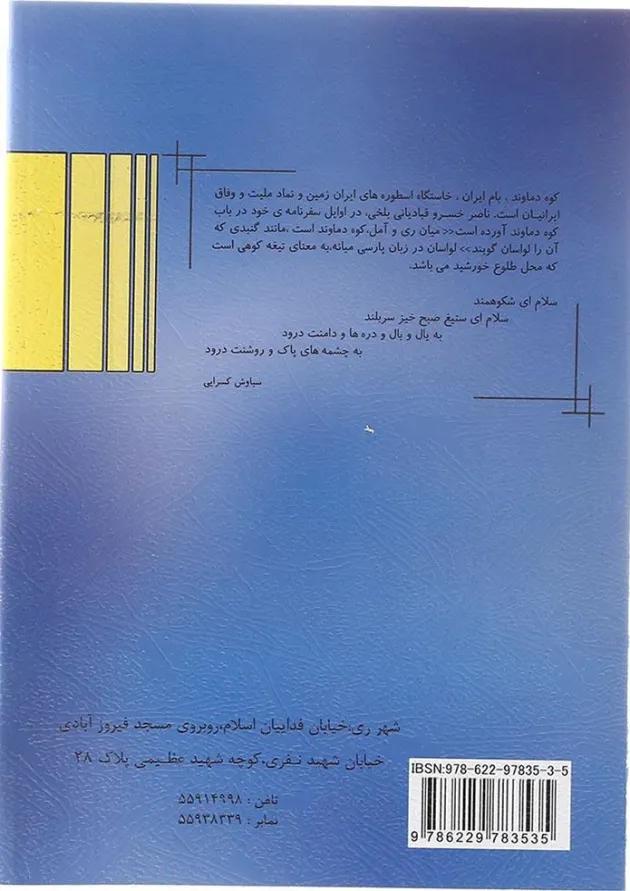 کوه دماوند ، بام ایران ، خاستگاه اسطوره های ایران زمین و نماد ملیت و وفاق
ایرانیان است. ناصر خسرو قبادیانی بلخی، در اوایل سفرنامه ی خود در باب
کوه دماوند آورده است<< میان ری و آمل،کوه دماوند است ،مانند گنبدی که
آن را لواسان گویند>> لواسان در زبان پارسی میانه،به معنای تیغه کوهی است
که محل طلوع خورشید می باشد.
سلام ای شکوهمند
سلام ای ستیغ صبح خیز سربلند
به یال و بال و دره ها و دامنت درود
به چشمه های پاک و روشنت درود
سیاوش کسرایی
شهر ری،خیابان فداییان اسلام،روبروی مسجد فیروز آبادی
خیابان شهید نفری،کوچه شهید عظیمی پلاک ۲۸
تلفن : ۵۵۹۱۴۹۹۸
نمابر : ۵۵۹۳۸۳۳۹
IBSN:978-622-97835-3-5
9 786229 783535